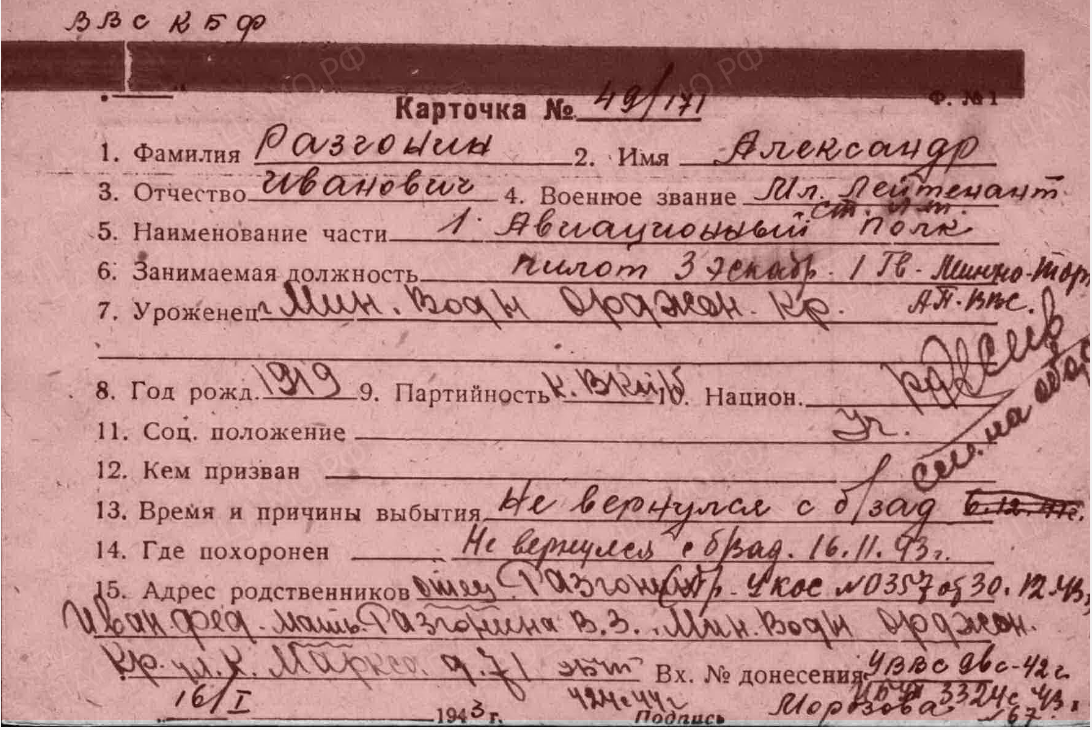 ВВС КБФ
Ф. №1
Карточка № 49/171
1. Фамилия Разгонин 2. Имя Александр
3. Отчество Иванович 4. Военное звание Мл. Лейтенант
ст. л-т.
5. Наименование части 1 Авиационный полк
6. Занимаемая должность пилот 3 эскадр. 1 Гв. Минно-Тор.
АП. ВВС.
7. Уроженец г. Мин. Воды Орджон. Кр.
8. Год рожд. 1919 9. Партийность к. ВКП/б 10. Национ.
11. Соц. положение
См. на обор
12. Кем призван
13. Время и причины выбытия Не вернулся с б/зад 6.12.41г.
14. Где похоронен Не вернулся с б/зад. 16.11.43г.
15. Адрес родственников отец Разгонин Пр. УКОС №0357 от 30.12.43
Иван Фед. мать Разгонина В.З. Мин. Воды Орджон.
Кр. ул. К. Маркса д. 71 Вх. № донесения УВВС 2вс-42г
3324с 43г
16/I 1943 г. 424с 44г Подпись Морозова
167.
ЦАМО РФ